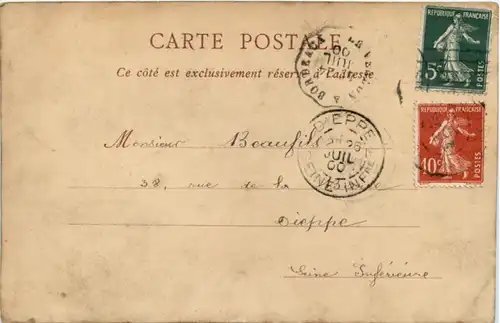 CARTE POSTALE
Ce côté est exclusivement réservé à l'adresse
BORDEAUX
REPUBLIQUE FRANÇAISE
5c
REPUBLIQUE FRANÇAISE
10c
DIEPPE
26
JUIL
00
SEINE INFRE
Monsieur Beaufils
38, rue de la
Dieppe
Seine Inférieure